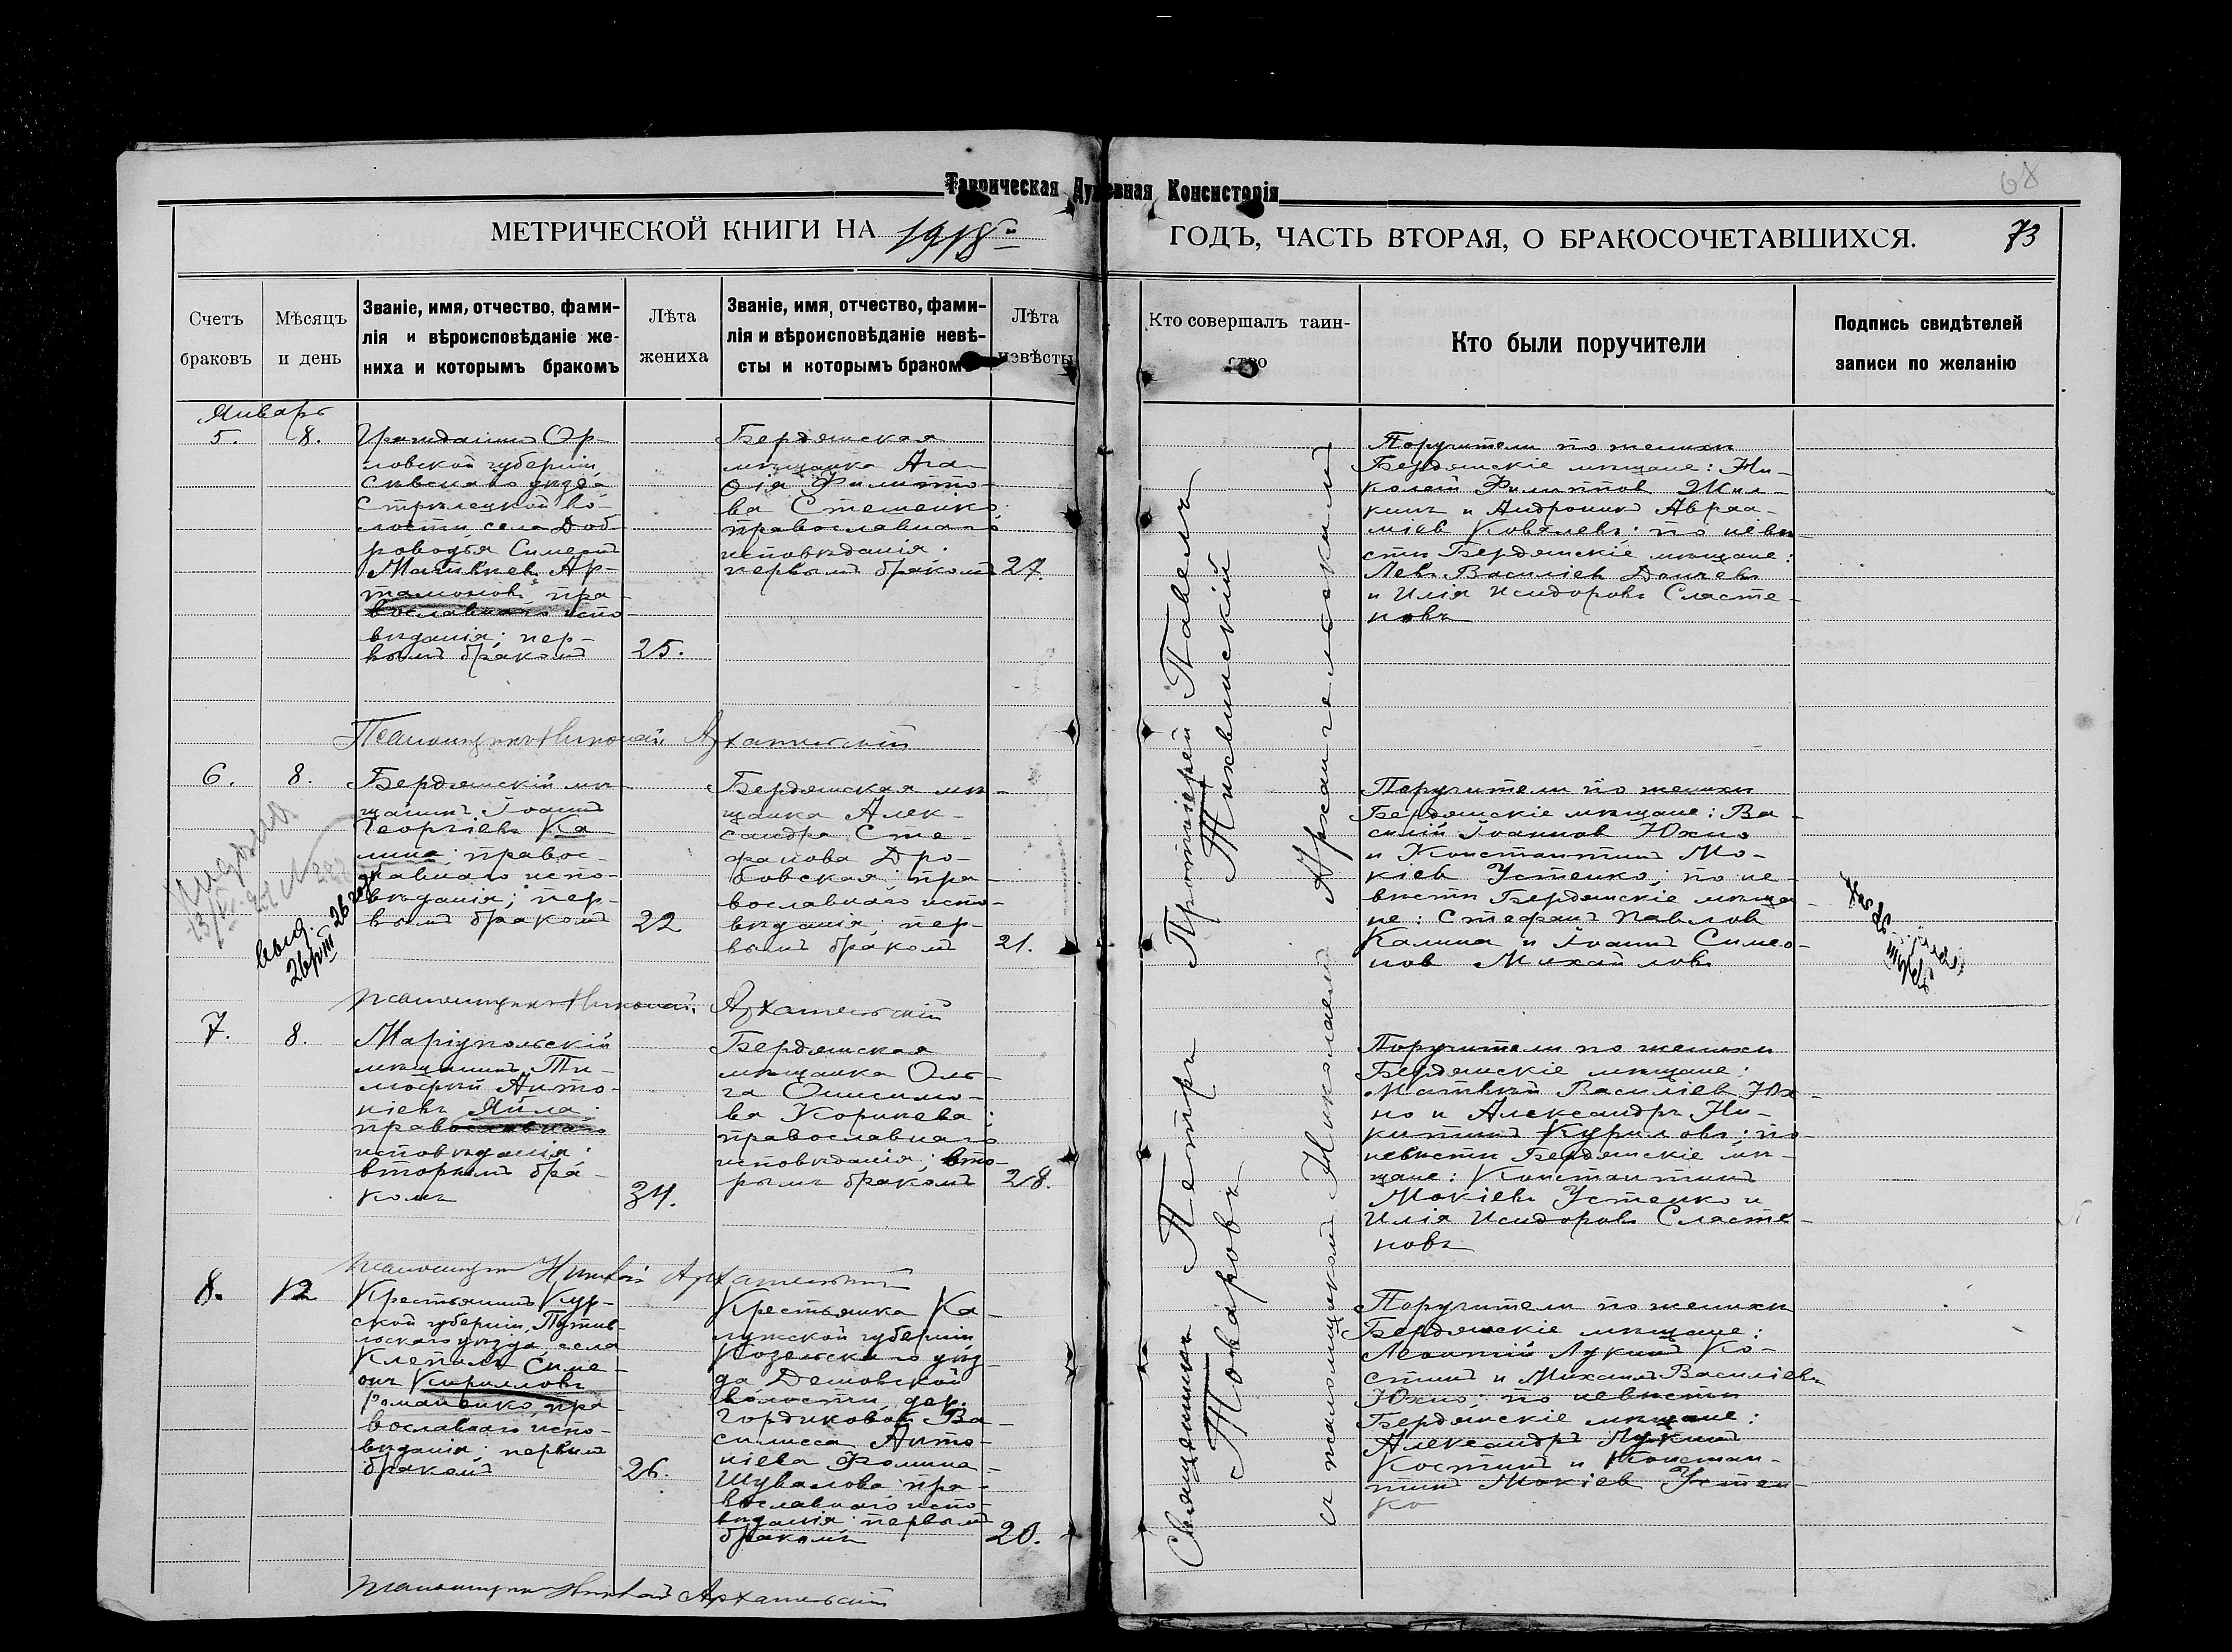 68
Таврическая Духовная Консисторія
МЕТРИЧЕСКОЙ КНИГИ НА 1918й ГОДЪ, ЧАСТЬ ВТОРАЯ, О БРАКОСОЧЕТАВШИХСЯ.
73
Счетъ
браковъ
Мѣсяцъ
и день
Званіе, имя, отчество, фами-
лія и вѣроисповѣданіе же-
ниха и которымъ бракомъ
Лѣта
жениха
Званіе, имя, отчество, фами-
лія и вѣроисповѣданіе невѣ-
сты и которымъ бракомъ
Лѣта
невѣсты
Кто совершалъ таин-
ство
Кто были поручители
Подпись свидѣтелей
записи по желанію
Январь
5.
8.
Гражданинъ Ор-
ловской губерніи
Сѣвскаго уѣзда
Стрѣлецкой во-
лости, села Доб-
роводья Симеонъ
Матвѣевъ Ар-
тамоновъ, пра-
вославнаго испо-
вѣданія; пер-
вымъ бракомъ
25.
Бердянская
мѣщанка Ага-
ѳія Филиппо-
ва Стешенко;
православнаго
исповѣданія.
первымъ бракомъ
27.
Поручители по женихѣ
Бердянскіе мѣщане: Ни-
колай Филиппов Жил-
кинъ и Андроникъ Авраа-
міев Ковалевъ; по невѣ-
стѣ Бердянскіе мѣщане:
Левъ Василіев
и Илія Исидоровъ Сласте-
новъ
Псаломщикъ Николай Архангельскій
6.
8.
Бердянскій мѣ-
щанинъ Іоаннъ
Георгіевъ Ка-
лина; правос-
лавнаго испо-
вѣданія; пер-
вымъ бракомъ
22
Бердянская мѣ-
щанка Алек-
сандра Сте-
фанова Дро-
бовская; пра-
вославнаго испо-
вѣданія; пер-
вымъ бракомъ
21.
Поручители по женихѣ
Бердянскіе мѣщане: Ва-
силій Іоаннов Юхно
и Константинъ Мо-
кіев Устенко; по не-
вѣстѣ Бердянскіе мѣща-
не: Стефанъ Павлов
Калина и Іоаннъ Симео-
нов Михайловъ
Псаломщикъ Николай Архангельскій
7.
8.
Маріупольскій
мѣщанинъ Ти-
моѳей Анто-
ніевъ Яйла;
православнаго
исповѣданія;
вторымъ бра-
комъ
34.
Бердянская
мѣщанка Оль-
га Онисимо-
ва Корниева;
православнаго
исповѣданія; вто-
рымъ бракомъ
28.
Поручители по женихѣ
Бердянскіе мѣщане:
Матвѣй Василіев Юх-
но и Александръ Ни-
китинъ Куриловъ; по
невѣстѣ Бердянскіе мѣ-
щане: Константинъ
Мокіевъ Устенко и
Илія Исидоровъ Сласте-
новъ
Псаломщикъ Николай Архангельскій
8.
12
Крестьянинъ Кур-
ской губерніи, Путив-
льскаго уѣзда, села
Клепалъ Симе-
онъ Кирилловъ
Романенко, пра-
вославнаго испо-
вѣданія; первымъ
бракомъ
26.
Крестьянка Ка-
лужской губерніи
Козельскаго уѣз-
да, Дешовской
волости, дер.
Гордиковой Ва-
силисса Анто-
ніева Фомина-
Шувалова; пра-
вославнаго испо-
вѣданія; первымъ
бракомъ
20.
Поручители по женихѣ
Бердянскіе мѣщане:
Леонтій Лукинъ Ко-
стинъ и Михаилъ Василіевъ
Юхно; по невѣстѣ
Бердянскіе мѣщане:
Александръ Лукинъ
Костинъ и Констан-
тинъ Мокіев Устен-
ко
Псаломщикъ Николай Архангельскій
Протоіерей Павелъ
Тихвинскій
Священникъ Петръ
Товаровъ
съ псаломщикомъ Николаемъ Архангельскимъ